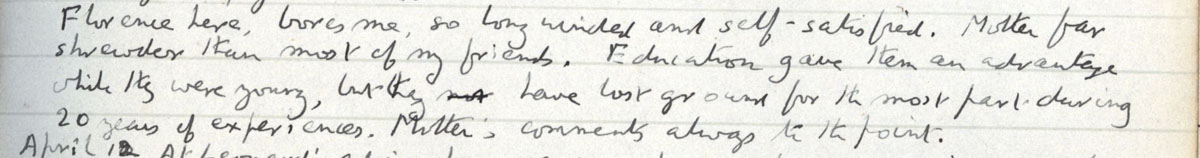 Florence here, bores me, so long winded and self-satisfied. Mother far
shrewder than most of my friends. Education gave them an advantage
while they were young, but they have lost ground for th most part during
20 years of experiences. Mother's comments always to th point.
April 12 At